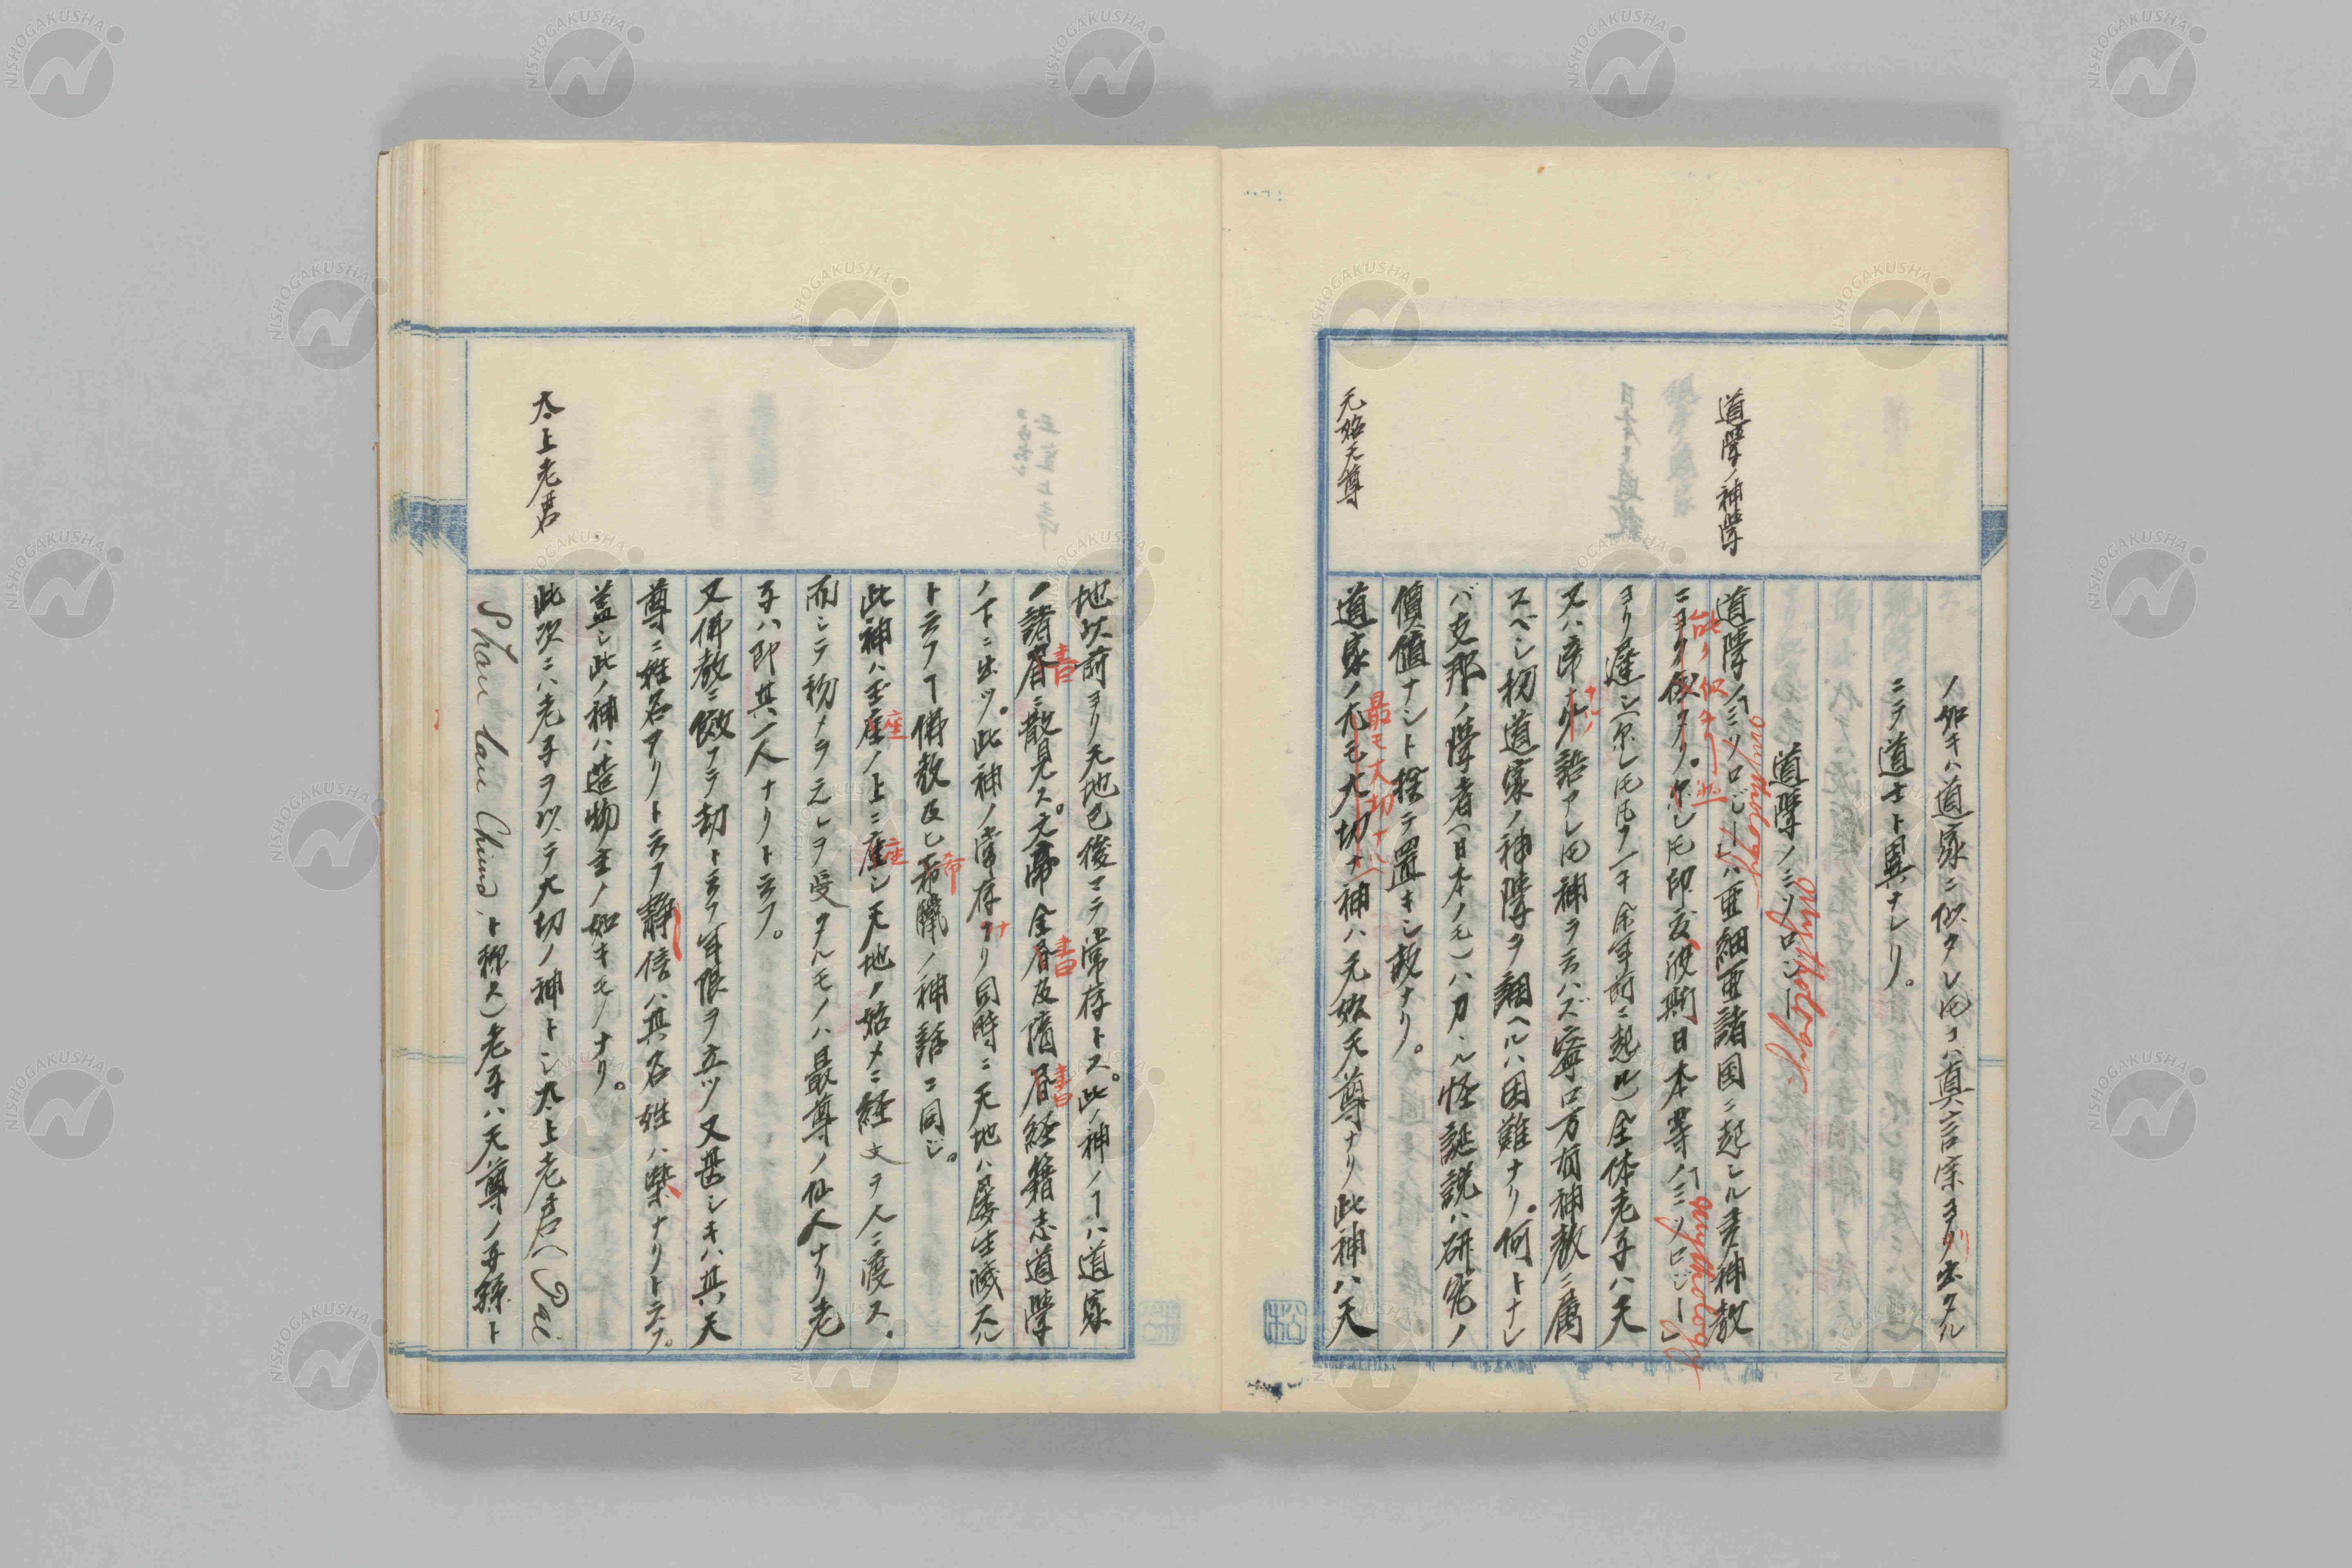 ノ如キハ道家ニ似タレ𪜈コハ真言宗ヨリ出タル
ニテ道士ト異ナレリ。
道學ノミソロジー
mythology.
道學ノ神學
道學ノ「ミソロジー」ハ亜細亜諸国ニ起レル多神教
mythology
ニヨク似タリ。尓レ𪜈印度波斯日本等ノ「ミソロジー」
能ク似タリ
mythology
ヨリ遅シ(尓レ𪜈𪜈
全体老子ハ天
又ハ帝
ナルノ
語アレ𪜈神ヲ云ハズ寧ロ万有神教ニ属
スベシ扨道家ノ神學ヲ調ベルハ困難ナリ。何トナレ
バ支那ノ學者(日本ノモ)ハカヽル怪誕説ハ研究ノ
價値ナシト捨テ置キシ故ナリ。
元始天尊
道家ノ尤モ大切ナ神ハ元始天尊ナリ此神ハ天
最モ大切ナハ
地以前ヨリ天地已後マデ常存トス。此ノ神ノヿハ道家
ノ諸書ニ散見ス。
書
及隋書経籍志道學
書
書
ノ下ニ出ツ。此神ノ常存ナリ同時ニ天地ハ屡生滅スル
ナ
ト云フヿ佛教及ヒ希臘ノ神話ニ同じ。
希
此神ハ玉座ノ上ニ座シ天地ノ始メニ経文ヲ人ニ渡ス。
座
座
而シテ初メテ之レヲ受ケタルモノハ最尊ノ仙人ナリ老
子ハ即其一人ナリト云フ。
又佛教ニ傚フテ劫ト云フ年限ヲ立ツ又甚シキハ其天
尊ニ姓名アリト云フ静信ハ其名姓ハ樂ナリト云フ。
蓋シ此ノ神ハ造物主ノ如キモノナリ。
太上老君
此次ニハ老子ヲ以テ大切ノ神トシ太上老君(
Shau Lau Chiun, ト称ス)老子ハ天尊ノ子孫ト